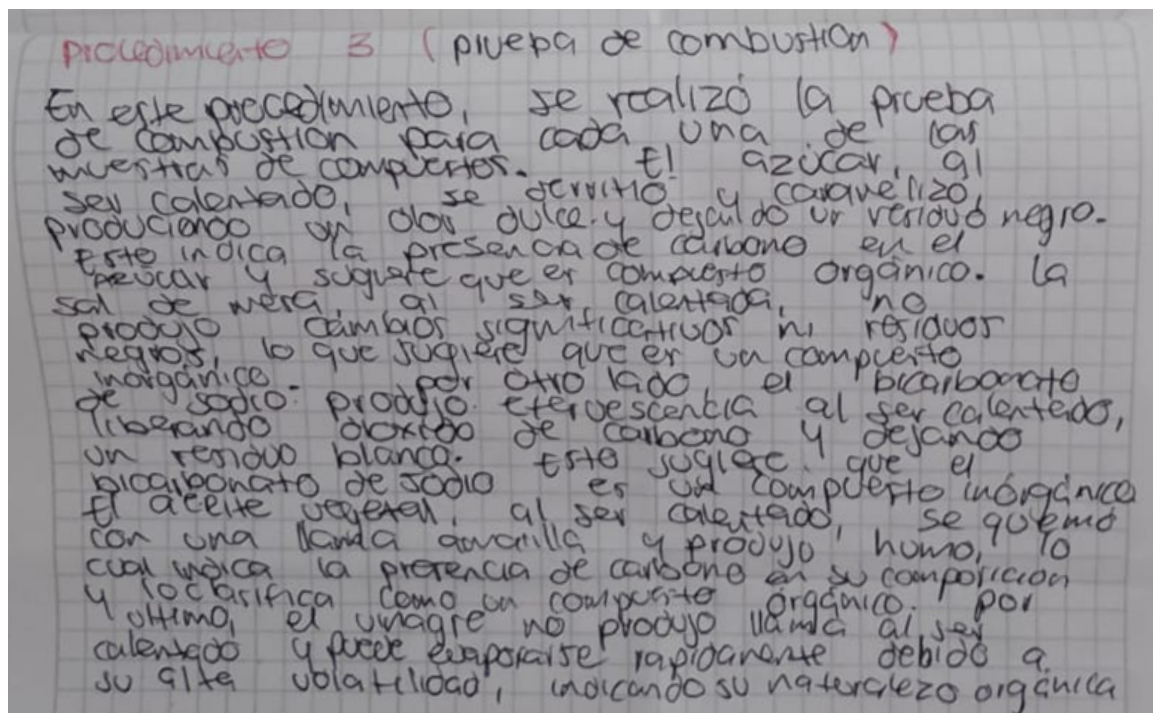 Procedimiento 3 (prueba de combustion)
En este procedimiento, se realizó la prueba
de combustion para cada una de las
muestras de compuertos. El azúcar, al
ser calentado, se derritio y caramelizo,
produciendo un olor dulce y dejando un residuo negro.
Esto indica la presencia de carbono en el
azucar y sugiere que es compuesto orgánico. la
sal de mesa, al ser calentada, no
produjo cambios significativos ni residuos
negros, lo que sugiere que es un compuesto
inorgánico. por otro lado, el bicarbonato
de sodio produjo efervescencia al ser calentado,
liberando dioxido de carbono y dejando
un residuo blanco. Esto sugiere que el
bicarbonato de sodio es un compuesto inórgánico
El aceite vegetal, al ser calentado, se quemó
con una llama amarilla y produjo humo, lo
cual indica la presencia de carbono en su composicion
y lo clasifica como un compuesto órgánico. por
ultimo, el vinagre no produjo llama al ser
calentado y puede evaporarse rapidamente debido a
su alta volatilidad, indicando su naturalezo orgánica